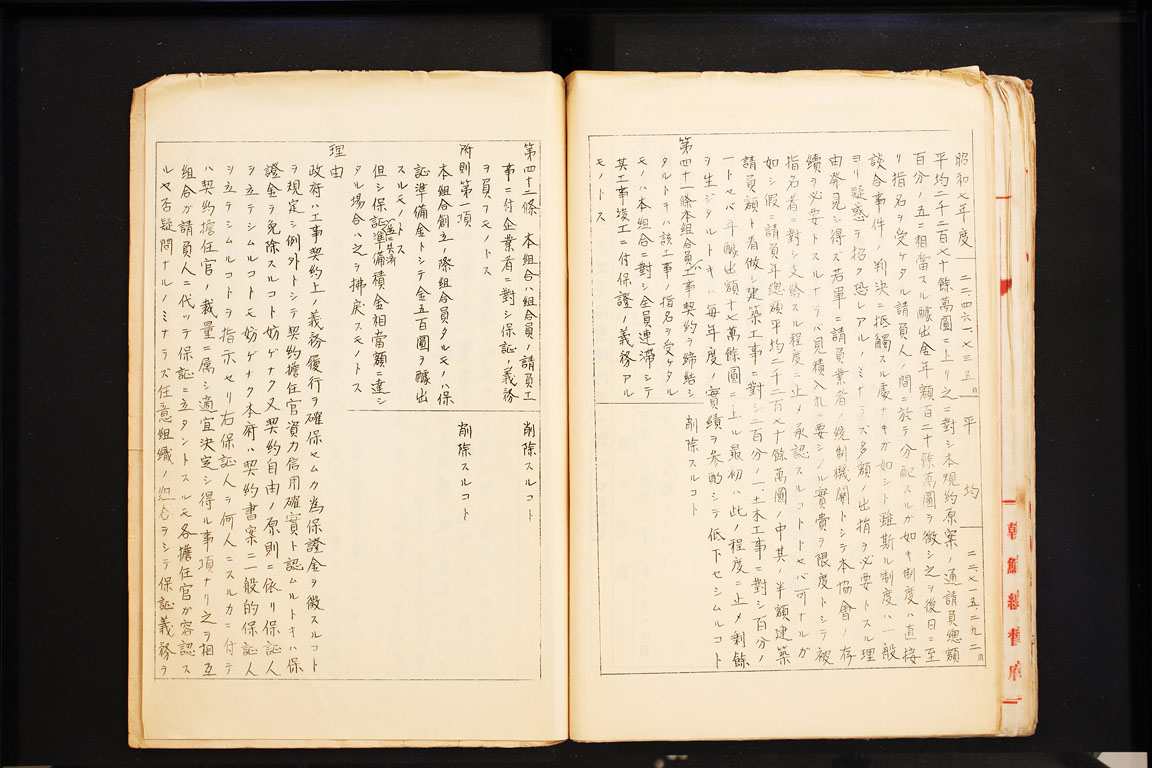 昭和七年度 二二、四六一、七三五円 平均 二二、七一五、二九二円
平均二千二百七十餘萬圓ニ上リ之ニ對シ本規約原案ノ通請負總額
百分ノ五ニ相當スル醵出金年額百二十餘萬圓ヲ徴シ之ヲ後日ニ至
リ指名ヲ受ケタル請負人ノ間ニ於テ分配スルガ如キ制度ハ直接
談合事件ノ判決ニ抵觸スル處ナキガ如シト雖斯ル制度ハ一般
ヨリ疑惑ヲ招ク恐レアルノミナラズ多額ノ出捐ヲ必要トスル理
由発見シ得ズ若單ニ請負業者ノ統制機關トシテ本協會ノ存
續ヲ必要トスルナラバ見積入札ニ要シタル實費ヲ限度トシテ被
指名者ニ對シ支給スル程度ニ止メ承認スルコトトセバ可ナルガ
如シ假ニ請負年總額平均二千二百七十餘萬圓ノ中其ノ半額建築
請負額ト看做シ建築工事ニ對シ二百分ノ一土木工事ニ對シ百分ノ
一トセバ年醵出額十七萬餘圓ニ上ル最初ハ此ノ程度ニ止メ剰餘
ヲ生ジタルトキハ毎年度ノ實績ヲ参酌シテ低下セシムルコト
第四十一條本組合員ガ工事契約ヲ締結シ 削除スルコト
タルトキハ該工事ノ指名ヲ受ケタル
モノハ本組合ニ對シ全員連滞シテ
其工事竣工ニ付保證ノ義務アル
モノトス
第四十二條 本組合ハ組合員ノ請負工 削除スルコト
事ニ付企業者ニ對シ保証ノ義務
ヲ負フモノトス
附則第一項 削除スルコト
本組合創立ノ際組合員タルモノハ保
証準備金トシテ金五百圓ヲ醵出
スルモノトス
但シ保証準備積金相当額ニ達シ
タル場合ハ之ヲ拂戻スモノトス
理由
政府ハ工事契約上ノ義務履行ヲ確保セムカ為保證金ヲ徴スルコト
ヲ規定シ例外トシテ契約擔任官資力信用確實ト認ムルトキハ保
證金ヲ免除スルコト妨ゲナク又契約自由ノ原則ニ依リ保証人
ヲ立テシムルコトモ妨ゲナク本府ハ契約書案ニ一般的保証人
ヲ立テシムルコトヲ指示セリ右保証人ヲ何人ニスルカニ付テ
ハ契約擔任官ノ裁量ニ属シ適宜決定シ得ル事項ナリ之ヲ相互
組合ガ請負人ニ代ッテ保証ニ立タントスルモ各擔任官ガ容認ス
ルヤ否疑問ナルノミナラズ任意組織ノ組合ヲシテ保証義務ヲ
朝鮮總督府